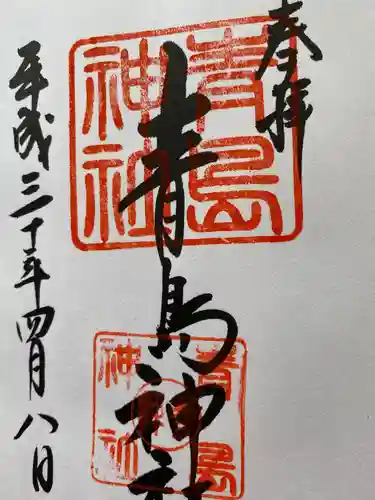 奉拝
青島神社
平成三十年四月八日
青島
神社
青島
神社